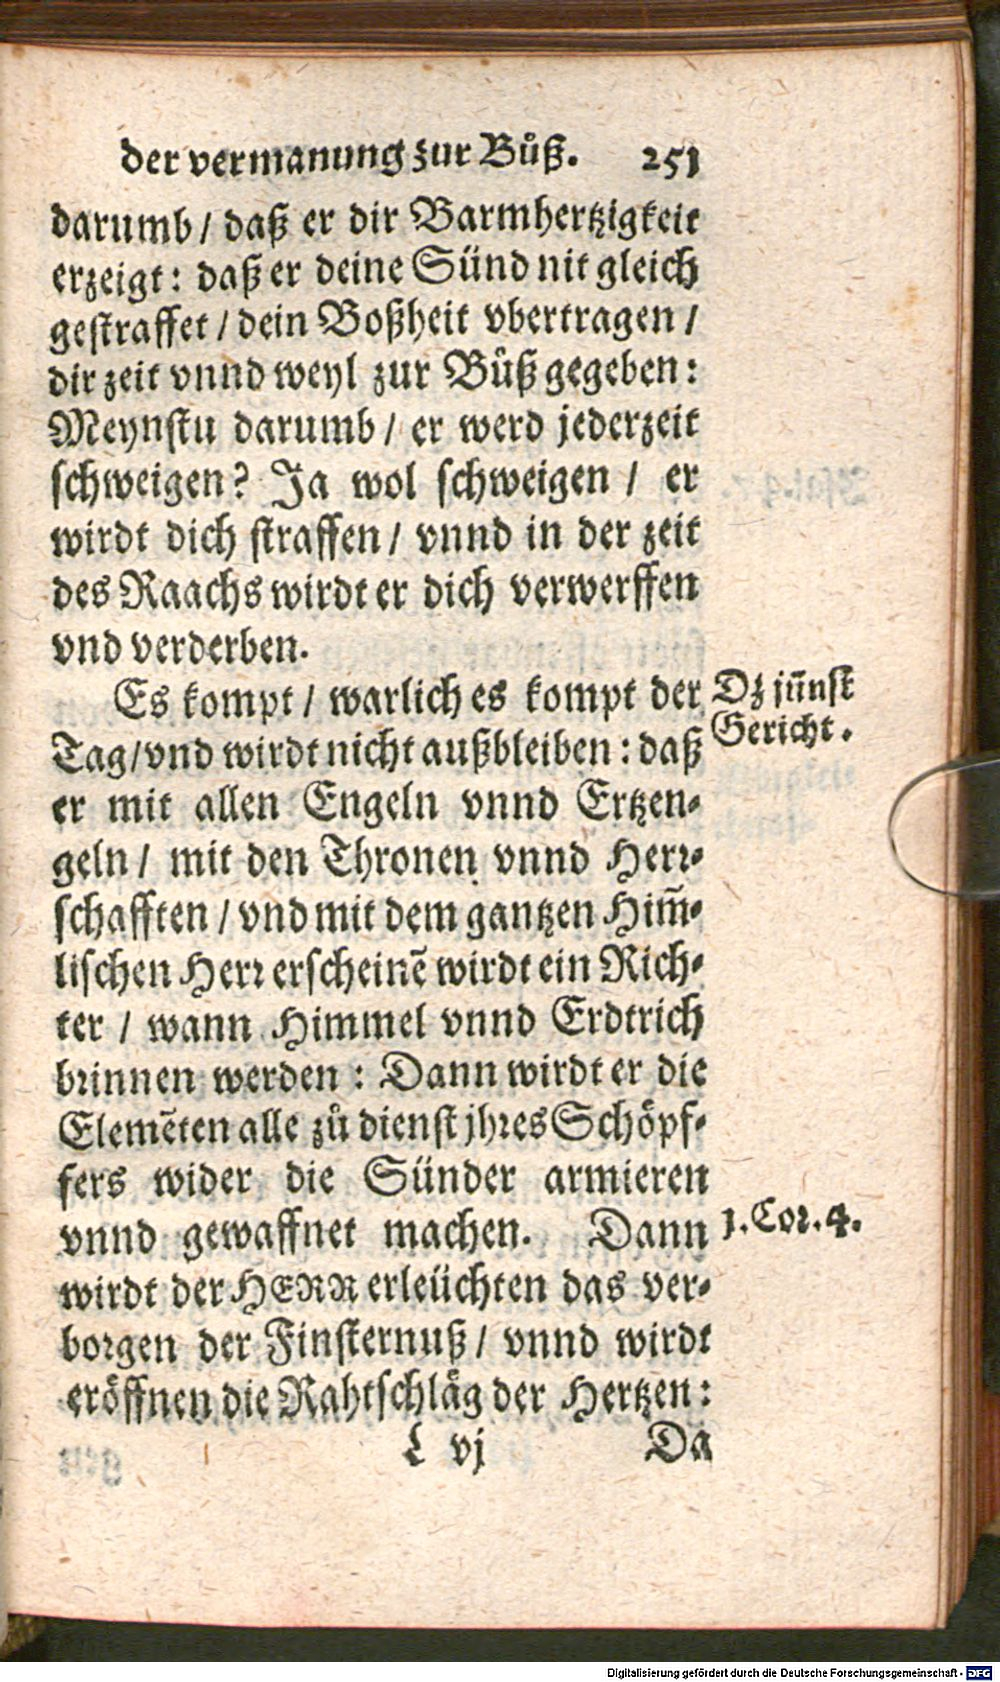 der vermanung zur Bůß. 251
darumb / daß er dir Barmhertzigkeit
erzeigt: daß er deine Sünd nit gleich
gestraffet / dein Boßheit vbertragen /
dir zeit vnnd weyl zur Bůß gegeben:
Meynstu darumb / er werd jederzeit
schweigen? Ja wol schweigen / er
wirdt dich straffen / vnnd in der zeit
des Raachs wirdt er dich verwerffen
vnd verderben.
Es kompt / warlich es kompt der
Tag / vnd wirdt nicht außbleiben: daß
er mit allen Engeln vnnd Ertzen-
geln / mit den Thronen vnnd Herr-
schafften / vnd mit dem gantzen Him̃-
lischen Herr erscheinẽ wirdt ein Rich-
ter / wann Himmel vnnd Erdtrich
brinnen werden: Dann wirdt er die
Elemẽten alle zů dienst jhres Schöpf-
fers wider die Sünder armieren
vnnd gewaffnet machen. Dann
wirdt der HERR erleüchten das ver-
borgen der Finsternuß / vnnd wirdt
eröffnen die Rahtschläg der Hertzen:
L vj Da
Dz jüñst
Gericht.
1. Cor. 4.
Digitalisierung gefördert durch die Deutsche Forschungsgemeinschaft - DFG